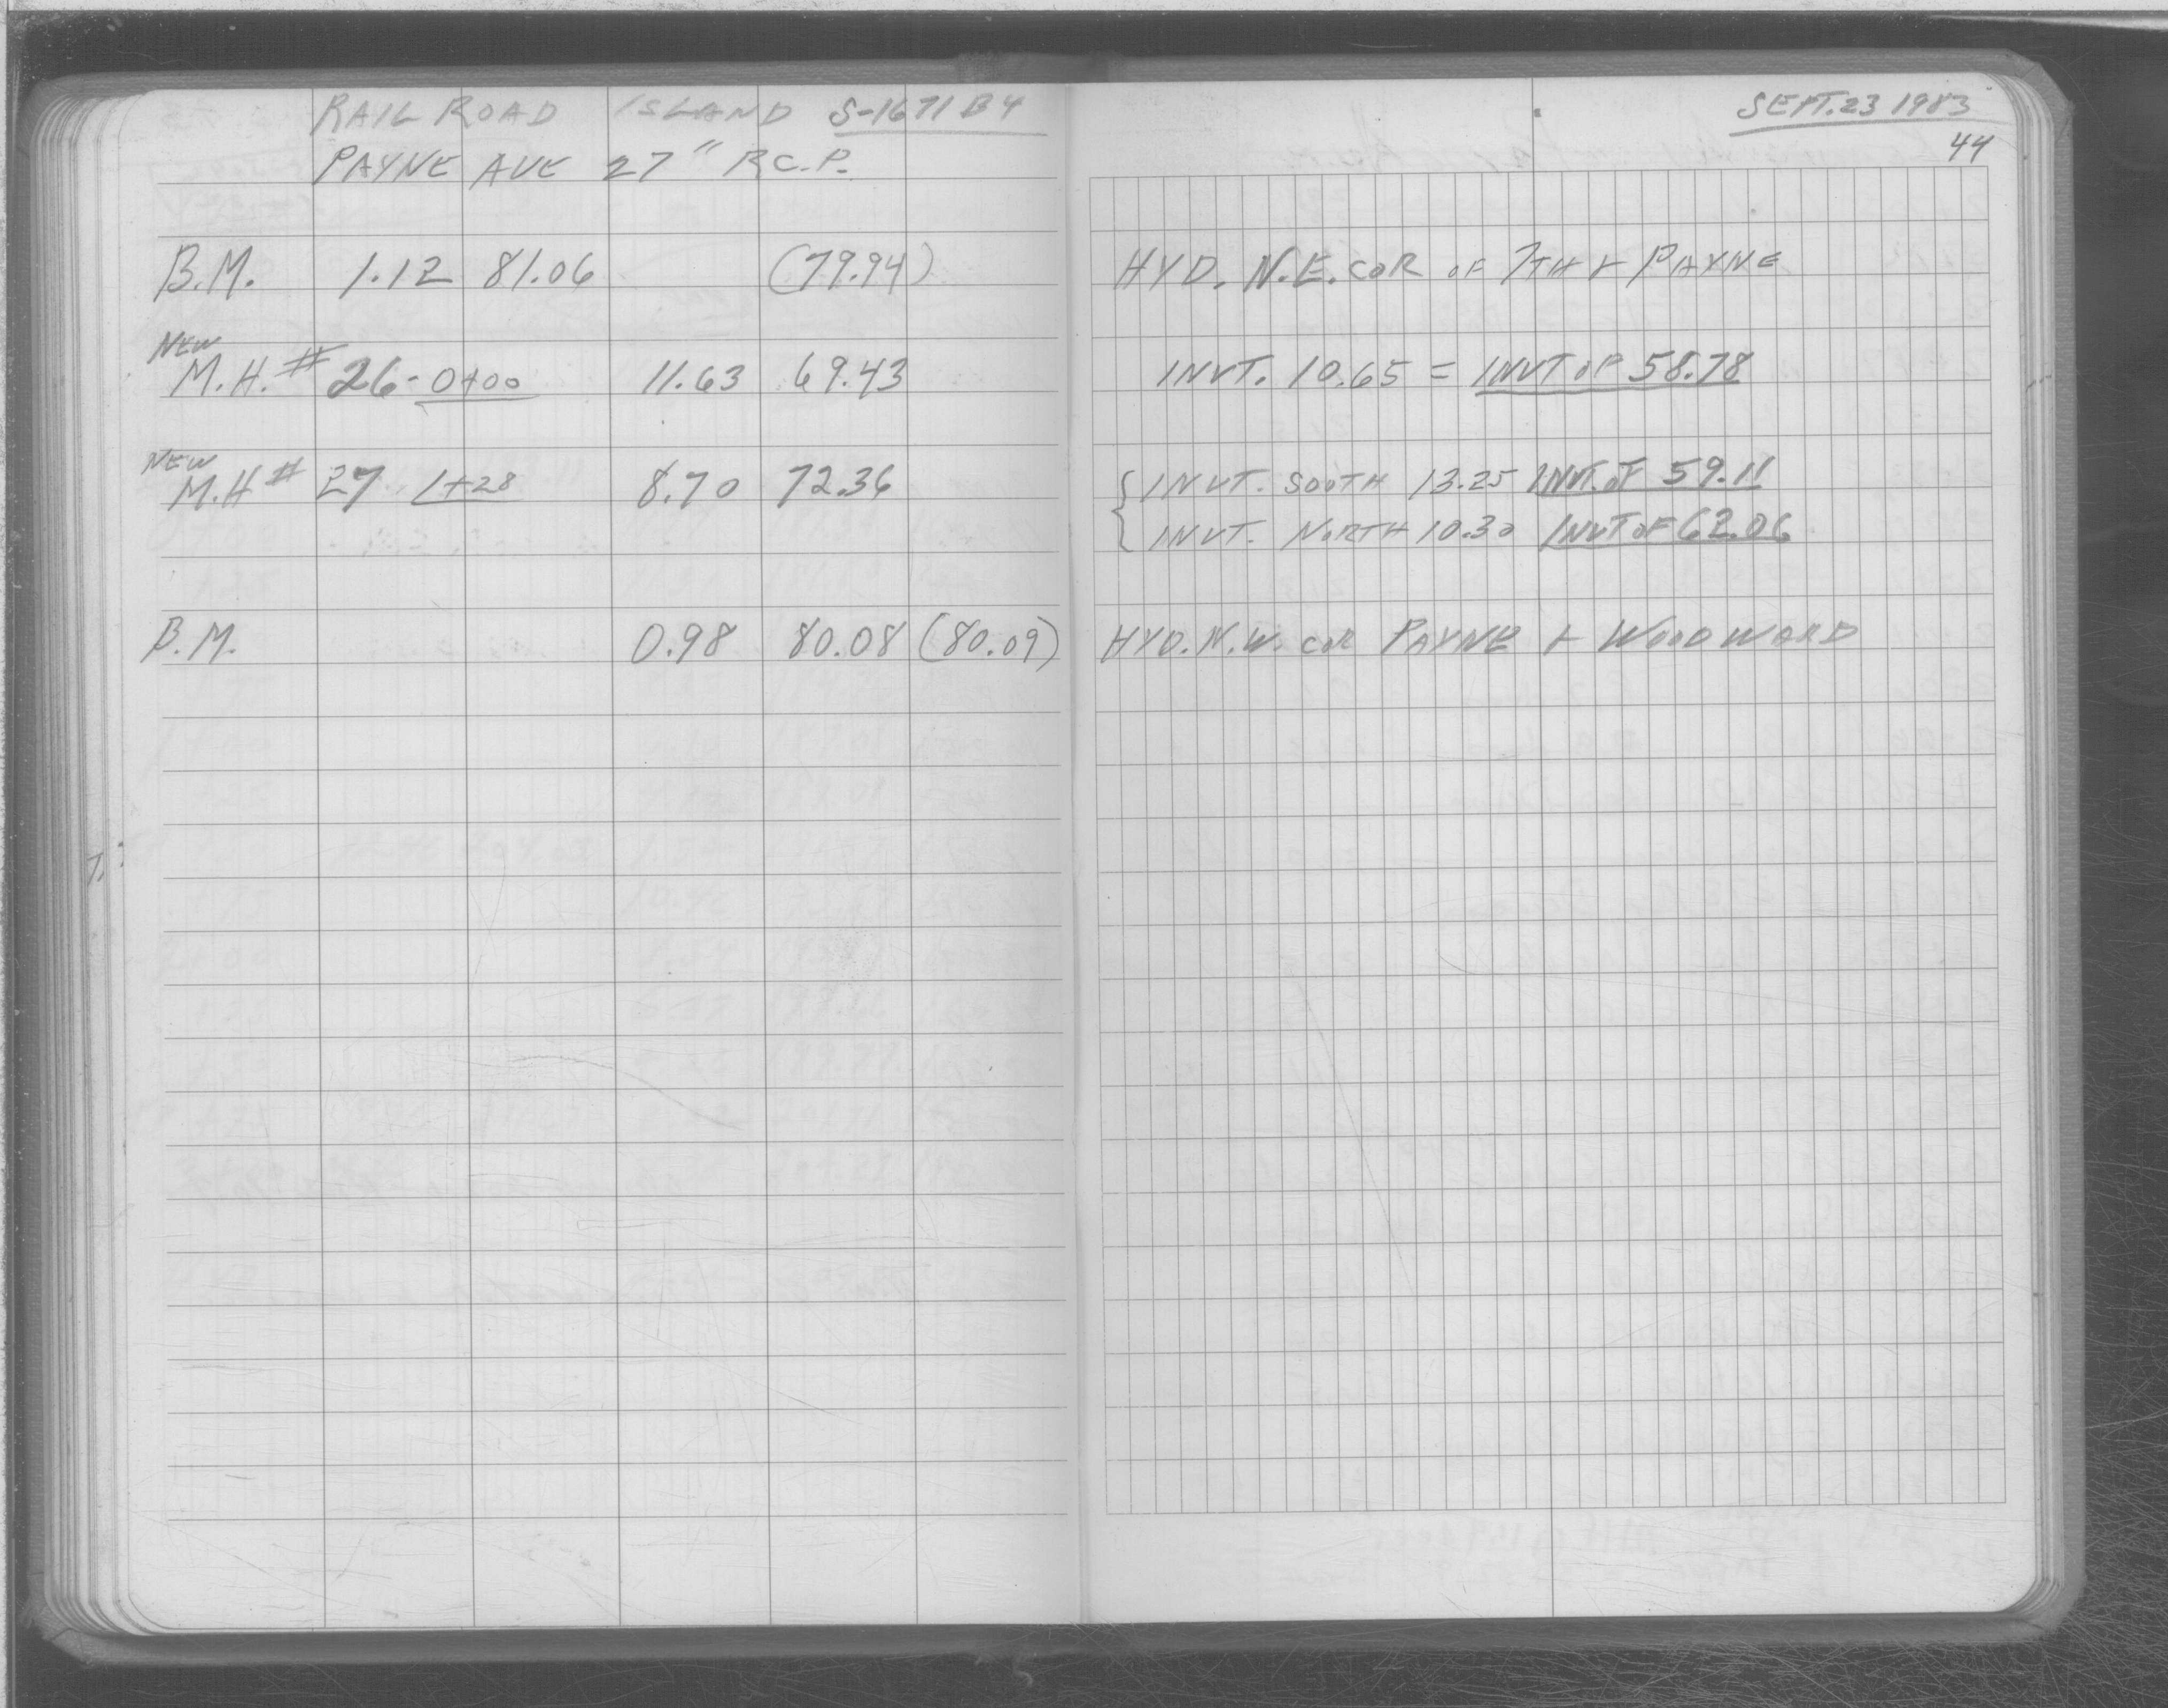 RAIL ROAD ISLAND S-1671 B4
PAYNE AVE 27" R.C.P.
B.M. 1.12 81.06 (79.94)
NEW
M.H. # 26-0+00 11.63 69.43
NEW
M.H # 27 1+28 8.70 72.36
B.M. 0.98 80.08 (80.09)
SEPT. 23 1983
44
HYD. N.E. COR OF 7TH & PAYNE
INVT. 10.65 = INVT OF 58.78
INVT. SOOTH 13.25 INVT. OF 59.11
INVT. NORTH 10.30 INVT OF 62.06
HYD. N.W. COR PAYNE & WOODWARD